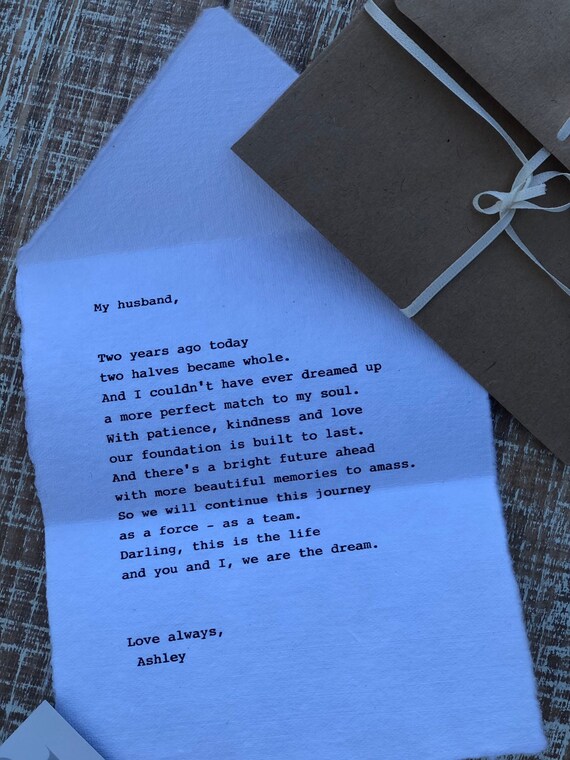 My husband,
Two years ago today
two halves became whole.
And I couldn't have ever dreamed up
a more perfect match to my soul.
With patience, kindness and love
our foundation is built to last.
And there's a bright future ahead
with more beautiful memories to amass.
So we will continue this journey
as a force - as a team.
Darling, this is the life
and you and I, we are the dream.
Love always,
Ashley